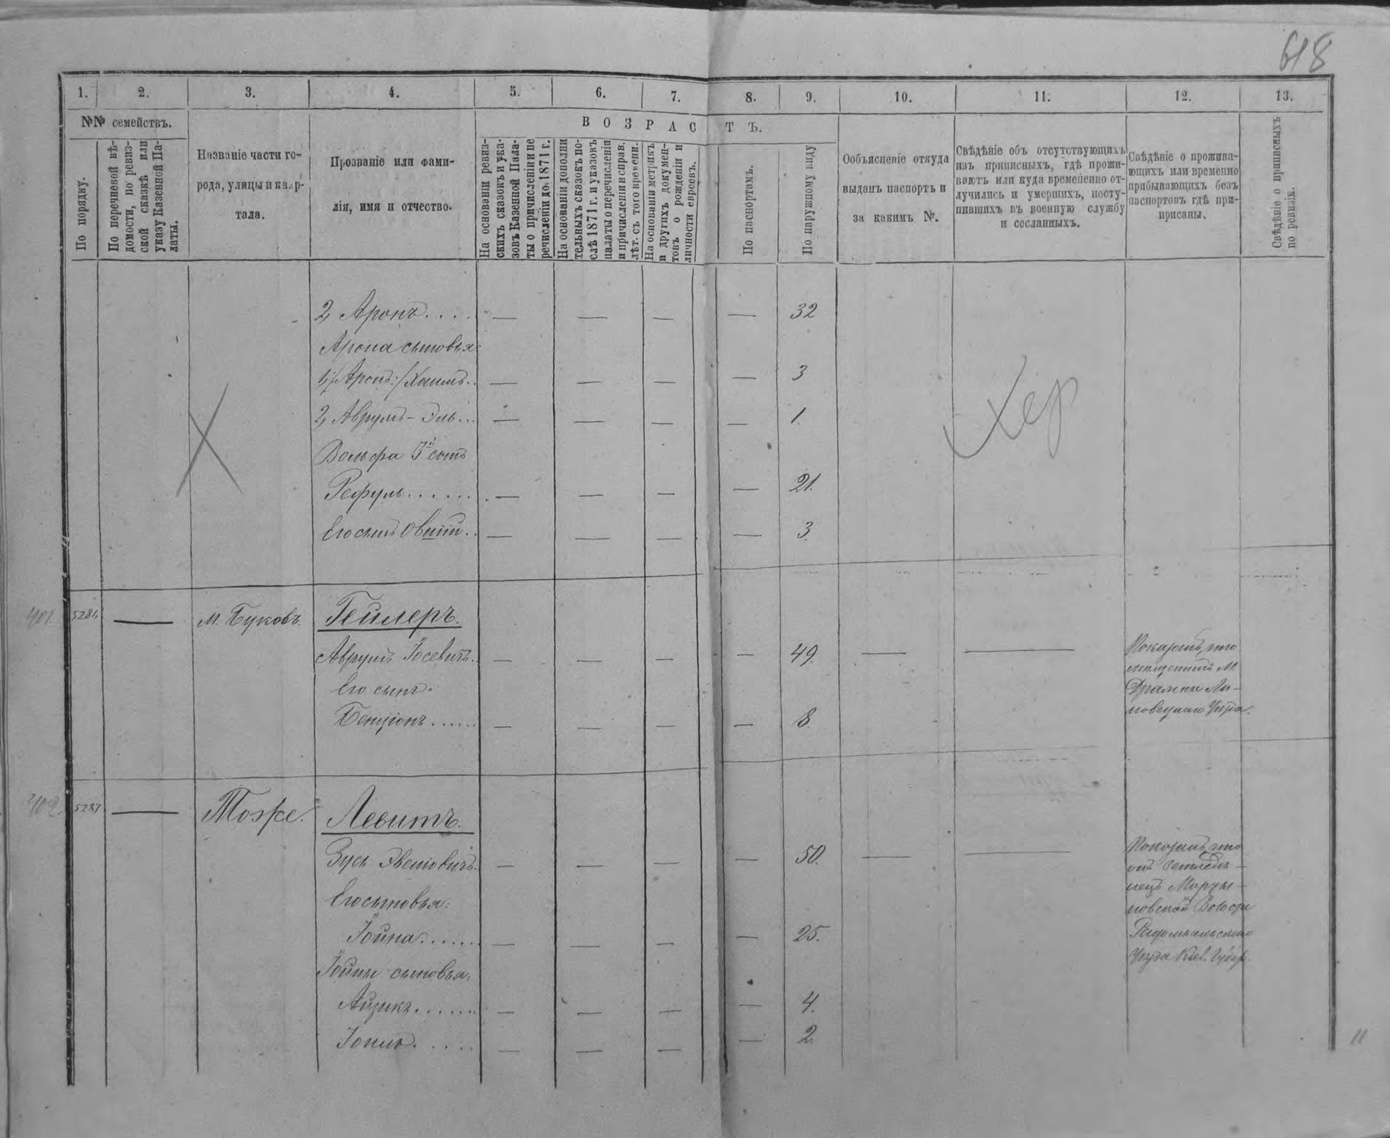 618
1. 2. 3. 4. 5. 6. 7. 8. 9. 10. 11. 12. 13.
№№ семействъ.
По порядку.
По перечневой вѣ-
домости, по ревиз-
ской сказкѣ или
указу Казенной Па-
латы.
Названіе части го-
рода, улицы и квар-
тала.
Прозваніе или фами-
лія, имя и отчество.
ВОЗРАСТЪ.
На основаніи ревиз-
скихъ сказокъ и ука-
зовъ Казенной Пала-
ты о причисленіи и пе
речисленіи до 1871 г.
На основаніи дополни
тельныхъ сказокъ по-
слѣ 1871 г. и указокъ
палаты о перечисленіи
и причисленіи и справ.
лѣт. съ того времени.
На основаніи метрикъ
и другихъ докумен-
товъ о рожденіи и
личности евреевъ.
По паспортамъ.
По наружному виду
Ообъясненіе откуда
выданъ паспортъ и
за какимъ №.
Свѣдѣніе объ отсутствующихъ
изъ приписныхъ, гдѣ прожи-
ваютъ или куда временно от-
лучились и умершихъ, посту-
пившихъ въ военную службу
и сосланныхъ.
Свѣдѣніе о прожива-
ющихъ или временно
прибывающихъ безъ
паспортовъ гдѣ при-
приcаны.
Свѣдѣніе о приписныхъ
по ревизіи.
2, Аронъ.... — — — — 32
Арона сыновья:
1, /Аронъ:/ Хаимъ.. — — — — 3
2, Аврумъ-Эль... — — — — 1.
Вольфа 3й сынъ
Рефуль...... — — — — 21.
Его сынъ Овший.. — — — — 3
Хер
401. 5286 — м. Буковъ. Гейлеръ.
Аврумъ Іосевичъ. — — — — 49. — —
Его сынъ.
Бенціонъ...... — — — — 8.
Показалъ, что
мещанинъ М.
Уѣзда.
402. 5287 — Тоже. Левитъ.
Зусь Эвелевичъ. — — — — 50. — —
Его сыновья:
Іойна...... — — — — 25.
Іойны сыновья.
Айзикъ....... — — — — 4.
Іоиль..... — — — — 2.
Показалъ, что
онъ землед-
лецъ
Радомысльскаго
Уѣзда Кіев. Губер.
11